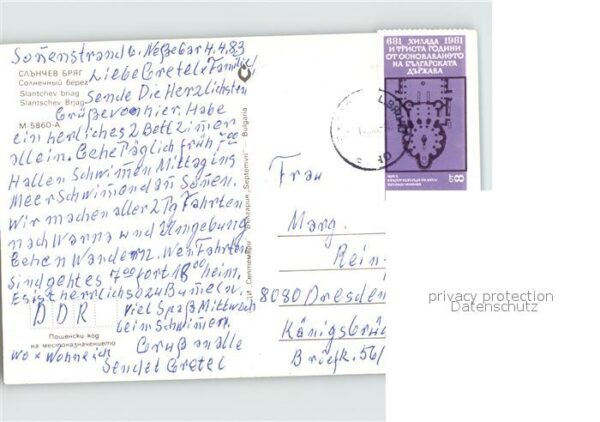 Sonenstrand b. Neßebar 4.4.83
СЛЪНЧЕВ БРЯГ
Солнечный берег
Slantchev briag
Slantschev Brjag
M-5860-A
Liebe Gretel u. Familie,
Sende Die Herzlichsten
Grüße von hier. Habe
ein herliches 2 Bett Zimer
allein. Gehe Täglich früh 7 00
Hallen Schwimen Mittag ins
Meer Schwimen und an Sonen.
Wir machen aller 2 Tg Fahrten
nach Warna und Umgebung
Gehen Wandern. Wen Fahrten
sind geht es 7 00 fort 18 00 heim.
Es ist herrlich so zu Bumeln.
Viel Spaß Mittwoch
beim Schwimen.
Grüß an alle
Sendet Gretel
DDR
Пощенски код
на местоназначението
wo x Wohne ich
ДИ „Септември“ България "Septemvri" — Bulgaria
681 ХИЛЯДА 1981
И ТРИСТА ГОДИНИ
ОТ ОСНОВАВАНЕТО
НА БЪЛГАРСКАТА
ДЪРЖАВА
Frau
Marg.
Rein-
8080 Dresden
Königsbrü
Briefk. 56/
privacy protection
Datenschutz